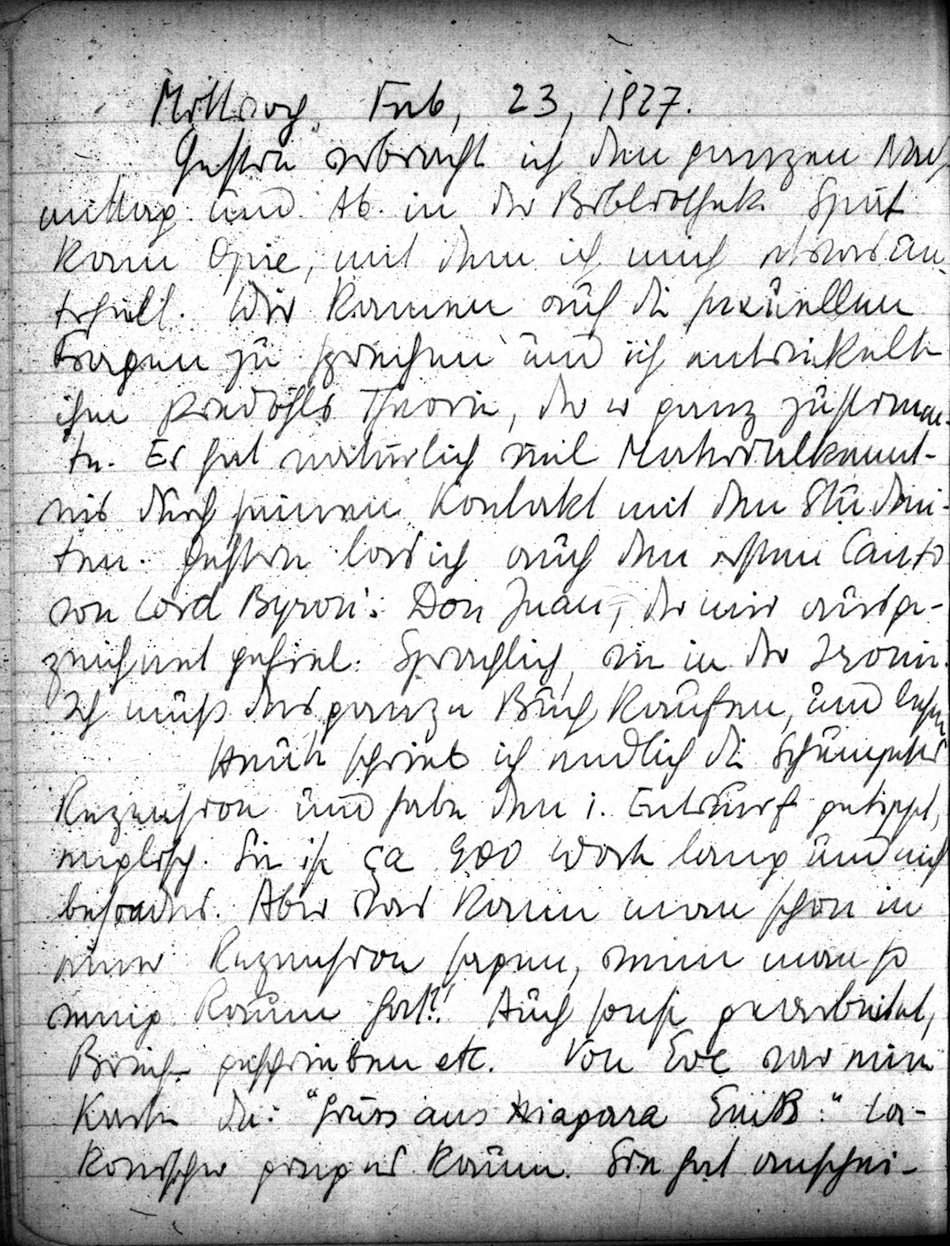 Mittwoch, Feb, 23, 1927.
Gestern verbracht ich den ganzen Nach
mittag und Ab. in der Bibliothek. Spät
kam Opie, mit dem ich mich etwas un
terhielt. Wir kamen auf die sexuellen
Fragen zu sprechen und ich entwickelte
ihm Theorie, der er ganz zustimm-
te. Er hat natürlich viel Materialkennt-
nis durch seinen Kontakt mit den Studen-
ten. Gestern las ich auch den ersten Canto
von Lord Byron's Don Juan, der mir ausge-
zeichnet gefiel. Sprachlich, wie in der Ironie.
Ich muß das ganze Buch kaufen, und lesen
Heute schrieb ich endlich die Schumpeter
Rezension und habe den 1. Entwurf getippt,
englisch. Sie ist ca 900 Worte lang und nich
besonders. Aber was kann man schon in
einer Rezension sagen, wenn man so
wenig Raum hat?! Auch sonst gearbeitet,
Briefe geschrieben etc. Von Eve war eine
Karte da: "Gruss aus Niagara EveB." La-
konischer ging es kaum. Sie hat anschei-